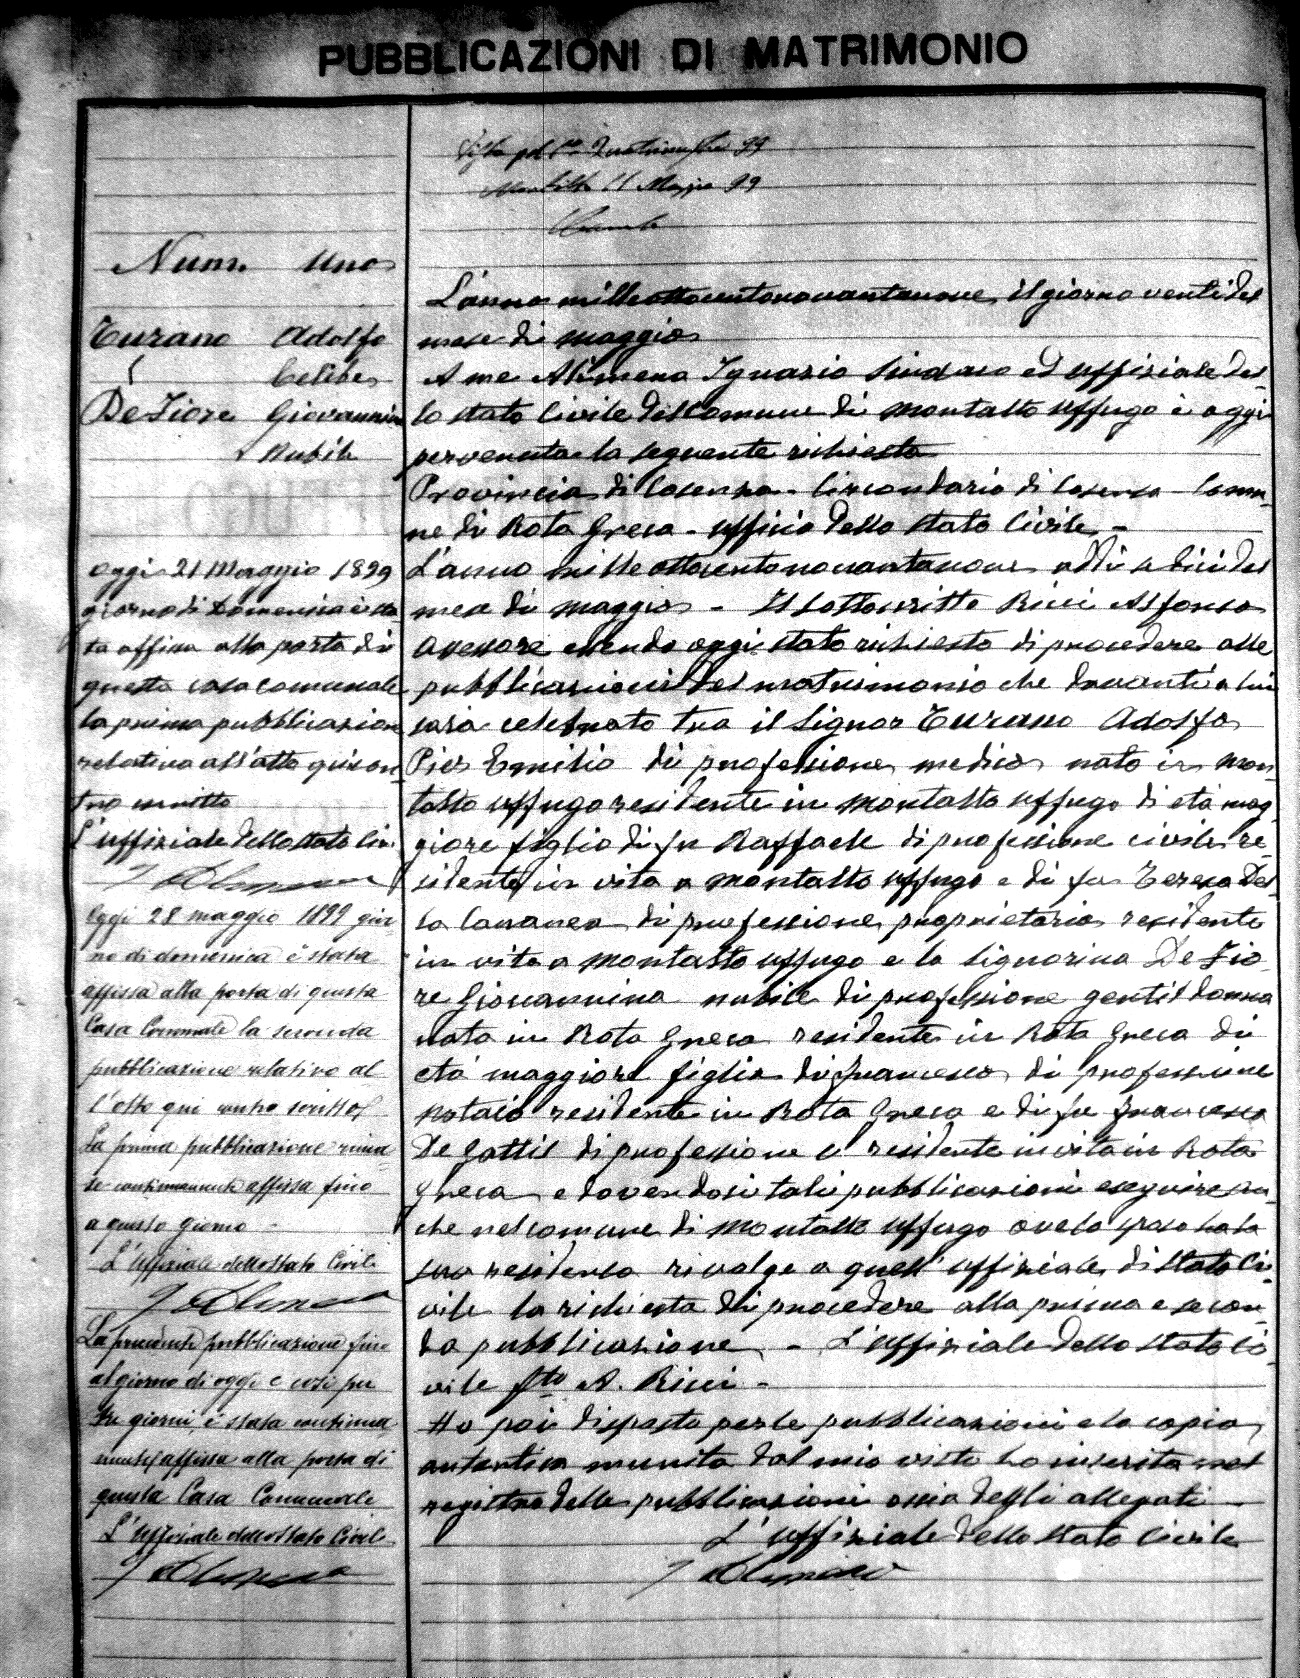 PUBBLICAZIONI DI MATRIMONIO
99
11 Maggio 99
Num. Uno
Turano Adolfo
Celibe
De Fiore Giovannina
Nubile
Oggi 21 Maggio 1899
giorno di Domenica è sta
ta affissa alla porta di
questa casa comunale
la prima pubblicazione
relativa all'atto qui con
tro scritto
L'uffiziale dello stato Civ.
I Alimena
Oggi 28 maggio 1899 gior
no di domenica è stata
affissa alla porta di questa
Casa Comunale la seconda
pubblicazione relativa al
l'atto qui contro scritto
La prima pubblicazione rima
se continuamente affissa fino
a questo giorno -
L'Uffiziale dello stato Civile
I Alimena
La presente pubblicazione fino
al giorno di oggi e così per
tre giorni, è stata continua
mente affissa alla porta di
questa Casa Comunale
L'Uffiziale dello Stato Civile
I Alimena
L'anno milleottocentonovantanove il giorno venti del
mese di maggio
A me Alimena Ignazio Sindaco ed uffiziale del
lo stato Civile del Comune di Montalto Uffugo è oggi
pervenuta la seguente richiesta
Provincia di Cosenza - Circondario di Cosenza - Comu
ne di Rota Greca - uffizio dello stato Civile -
L'anno mille ottocentonovantanove addì sedici del
mese di maggio - Il sottoscritto Ricci Alfonso
Assessore essendo oggi stato richiesto di procedere alle
pubblicazioni del matrimonio che davanti a lui
sarà celebrato tra il Signor Turano Adolfo
Pier Emilio di professione medico nato in Mon
talto Uffugo residente in Montalto Uffugo di età mag
giore figlio di fu Raffaele di professione civile re
sidente in vita a Montalto Uffugo e di fu Teresa Del
la Cananea di professione proprietaria residente
in vita a Montalto Uffugo e la Signorina De Fio
re Giovannina nubile di professione gentildonna
nata in Rota Greca residente in Rota Greca di
età maggiore figlia di Francesco di professione
notaio residente in Rota Greca e di fu Francesca
De Gattis di professione residente in vita in Rota
Greca e dovendosi tali pubblicazioni eseguire an
che nel comune di Montalto Uffugo ove lo sposo ha la
sua residenza rivolge a quell'uffiziale di stato Ci
vile la richiesta di procedere alla prima e secon
da pubblicazione - L'uffiziale dello stato Ci
vile fto A. Ricci -
Ho poi disposto per le pubblicazioni e la copia
autentica munita dal mio visto ho inserita nel
registro delle pubblicazioni ossia degli allegati
L'uffiziale dello stato Civile
I Alimena